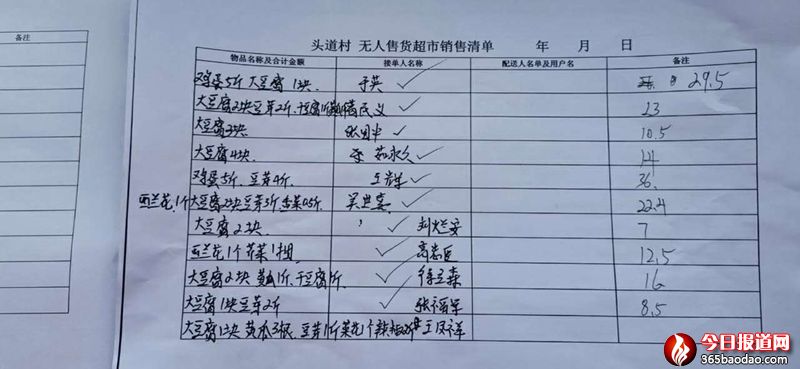 备注
头道村 无人售货超市销售清单 年 月 日
物品名称及合计金额 接单人名称 配送人名单及用户名 备注
鸡蛋5斤 大豆腐1块 于英 29.5
大豆腐2块豆芽2斤.干豆腐1斤 民义 23
大豆腐3块 10.5
大豆腐4块 茹永久 14
鸡蛋5斤.豆芽4斤 王 36.
西兰花1个大豆腐2块豆芽3斤香菜0.5斤 吴 22.4
大豆腐2块 刘 7
西兰花1个 芹菜1捆 12.5
大豆腐2块 1斤.干豆腐1斤 徐 森 16
大豆腐1块豆芽2斤 张福军 8.5
大豆腐1块 黄瓜3根.豆芽1斤菜花1个 王凤祥
今日报道网
365baodao.com